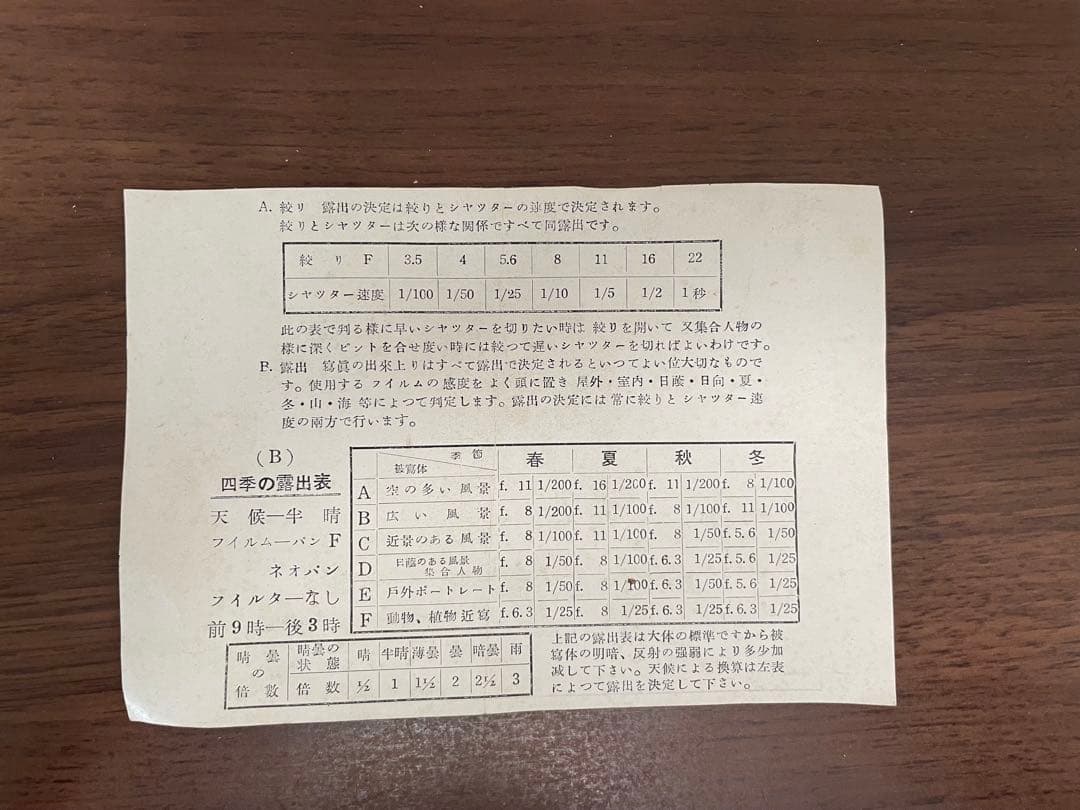 A. 絞リ 露出の決定は絞りとシヤツターの速度で決定されます。
絞りとシヤツターは次の様な関係ですべて同露出です。
絞リ F 3.5 4 5.6 8 11 16 22
シヤツター速度 1/100 1/50 1/25 1/10 1/5 1/2 1秒
此の表で判る様に早いシヤツターを切りたい時は 絞りを開いて 又集合人物の
様に深くピントを合せ度い時には絞つて遅いシヤツターを切ればよいわけです。
B. 露出 寫眞の出來上りはすべて露出で決定されるといつてよい位大切なもので
す。使用する フイルムの感度を よく頭に置き 屋外・室内・日蔭・日向・夏・
冬・山・海 等によつて判定します。露出の決定には 常に絞りと シヤツター速
度の兩方で行います。
(B)
四季の露出表
天候—半晴
フイルム—パンF
ネオパン
フイルター—なし
前9時—後3時
季節 被寫体 春 夏 秋 冬
A 空の多い風景 f. 11 1/200 f. 16 1/200 f. 11 1/200 f. 8 1/100
B 広い風景 f. 8 1/200 f. 11 1/100 f. 8 1/100 f. 11 1/100
C 近景のある風景 f. 8 1/100 f. 11 1/100 f. 8 1/50 f. 5.6 1/50
D 日蔭のある風景 集合人物 f. 8 1/50 f. 8 1/100 f. 6.3 1/25 f. 5.6 1/25
E 戸外ポートレート f. 8 1/50 f. 8 1/100 f. 6.3 1/50 f. 5.6 1/25
F 動物、植物近寫 f. 6.3 1/25 f. 8 1/25 f. 6.3 1/25 f. 5.6 1/25
晴曇の倍數 晴曇の状態 晴 半晴 薄曇 曇 暗曇 雨
倍數 ½ 1 1½ 2 2½ 3
上記の露出表は大体の標準ですから被
寫体の明暗、反射の強弱により多少加
減して下さい。天候による換算は左表
によつて露出を決定して下さい。